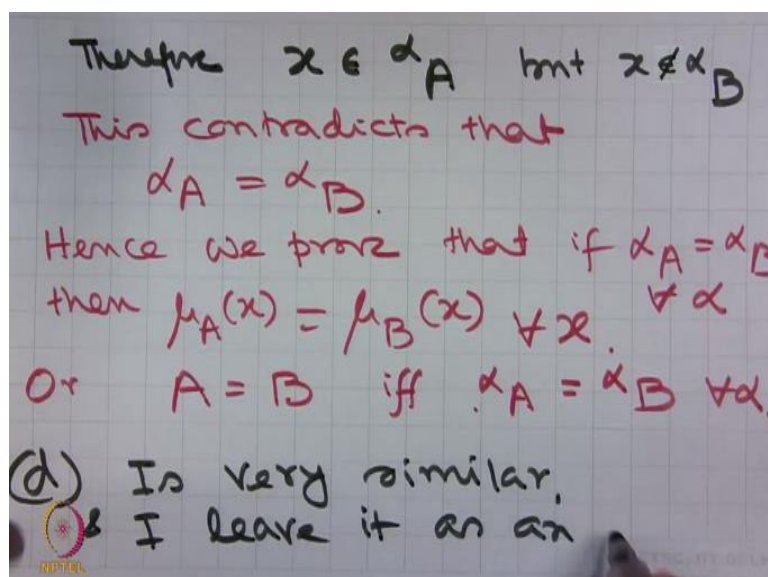 Therefore x ∈ ᵅA but x ∉ ᵅB
This contradicts that
ᵅA = ᵅB.
Hence we prove that if ᵅA = ᵅB
∀ α
then μ_A(x) = μ_B(x) ∀ x.
Or A = B iff ᵅA = ᵅB ∀α.
(d) Is very similar,
& I leave it as an
NPTEL